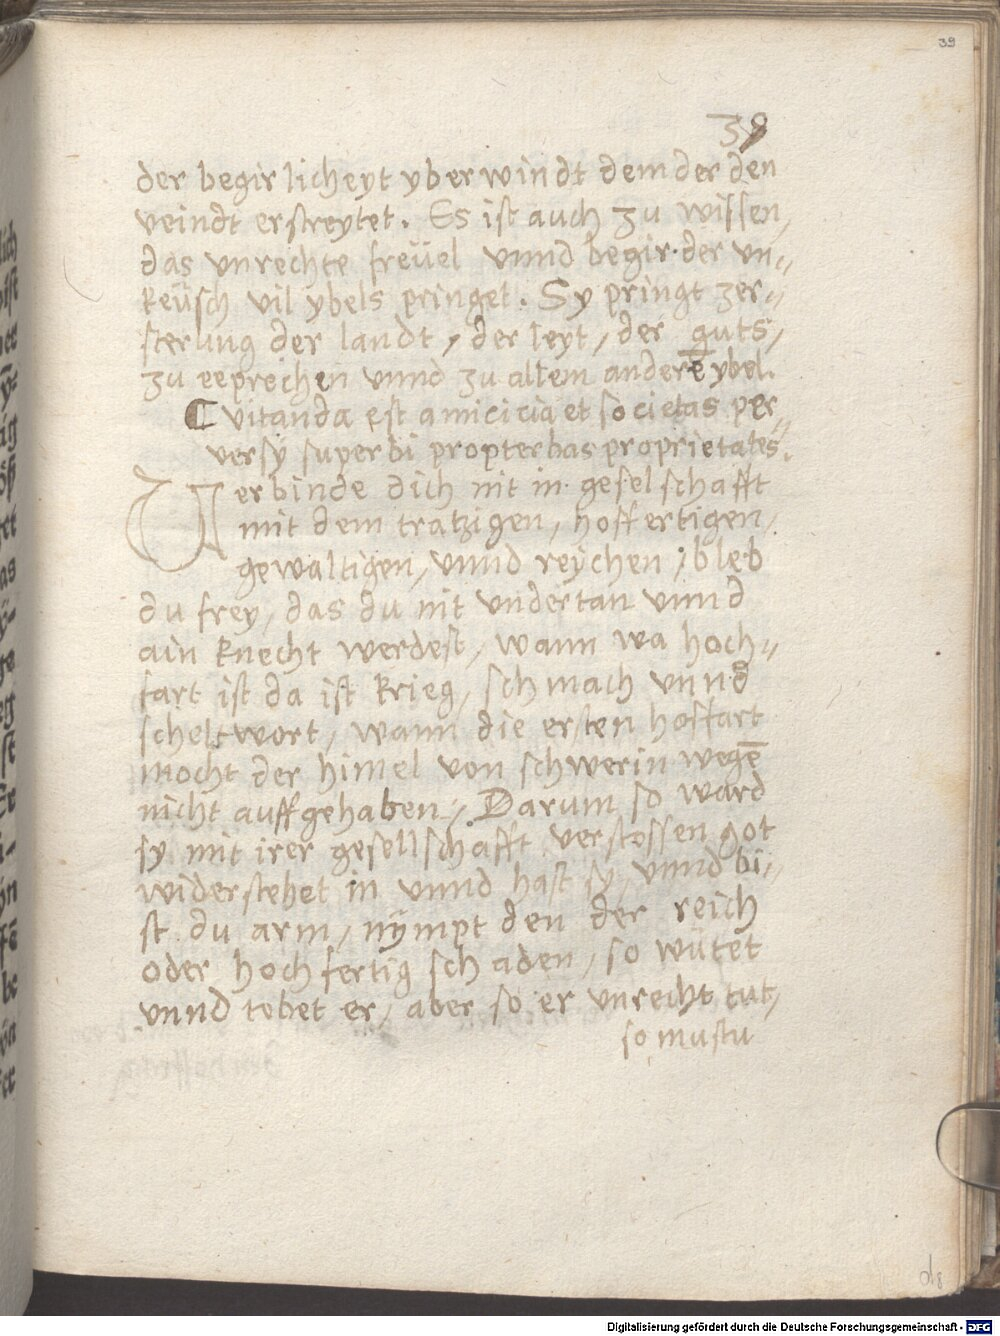 39
39
der begirlicheyt yberwindt dem der den
veindt erstreytet. Es ist auch zu wissen,
das vnrechte freüel vnnd begir der vn⸗
keüsch vil ybels pringet. Sy pringt zer⸗
sterung der landt, der leyt, der guts,
zu eeprechen vnnd zu allem anderē ybel.
C vitanda est amicicia et societas per⸗
versy superbi propter has proprietates.
Verbinde dich nit in geselschafft
mit dem tratzigen, hoffertigen,
gewaltigen, vnnd reychen, bleb
du frey, das du nit vndertan vnnd
ain knecht werdest, wann wa hoch⸗
fart ist da ist krieg, schmach vnnd
scheltwort, wann die ersten hoffart
mocht der himel von schwerin wegē
nicht auffgehaben, Darum so ward
sy mit irer gesellschafft verstossen got
widerstehet in vnnd hast sy, vnnd bi⸗
st du arm, nÿmpt den der reich
oder hochfertig schaden, so wütet
vnnd tobet er, aber so er vnrecht tut,
so mustu
d8
Digitalisierung gefördert durch die Deutsche Forschungsgemeinschaft - DFG